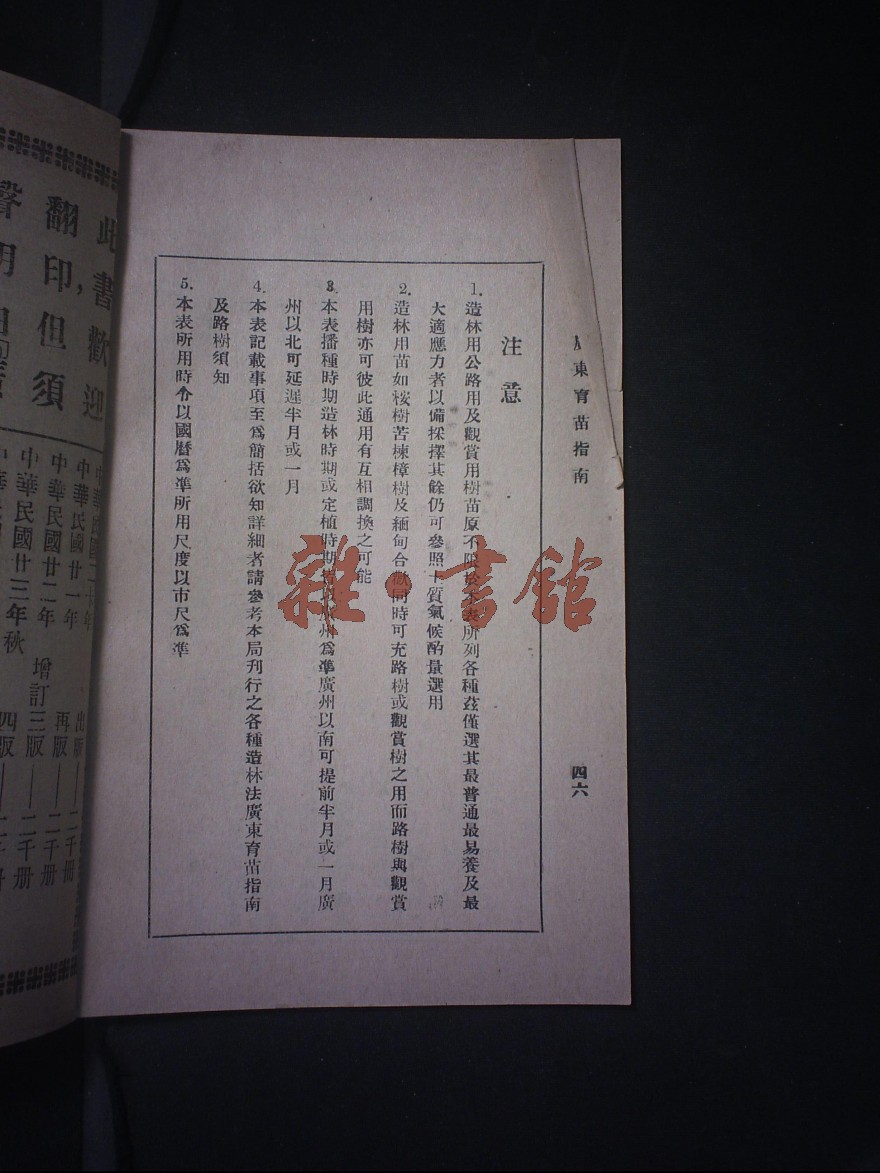 廣東育苗指南
四六
注意
1. 造林用公路用及觀賞用樹苗原不限於本表所列各種茲僅選其最普通最易養及最
大適應力者以備採擇其餘仍可參照土質氣候酌量選用
2. 造林用苗如桉樹苦楝樟樹及緬甸合歡同時可充路樹或觀賞樹之用而路樹與觀賞
用樹亦可彼此通用有互相調換之可能
3. 本表播種時期造林時期或定植時期皆以廣州爲準廣州以南可提前半月或一月廣
州以北可延遲半月或一月
4. 本表記載事項至爲簡括欲知詳細者請參考本局刊行之各種造林法廣東育苗指南
及路樹須知
5. 本表所用時令以國曆爲準所用尺度以市尺爲準
雜·書館
此書歡迎
翻印，但須
聲明
中華民國 年 出版——二千冊
中華民國廿一年 再版——二千冊
中華民國廿二年 增訂三版——二千冊
中華民國廿三年秋 四版——二千冊